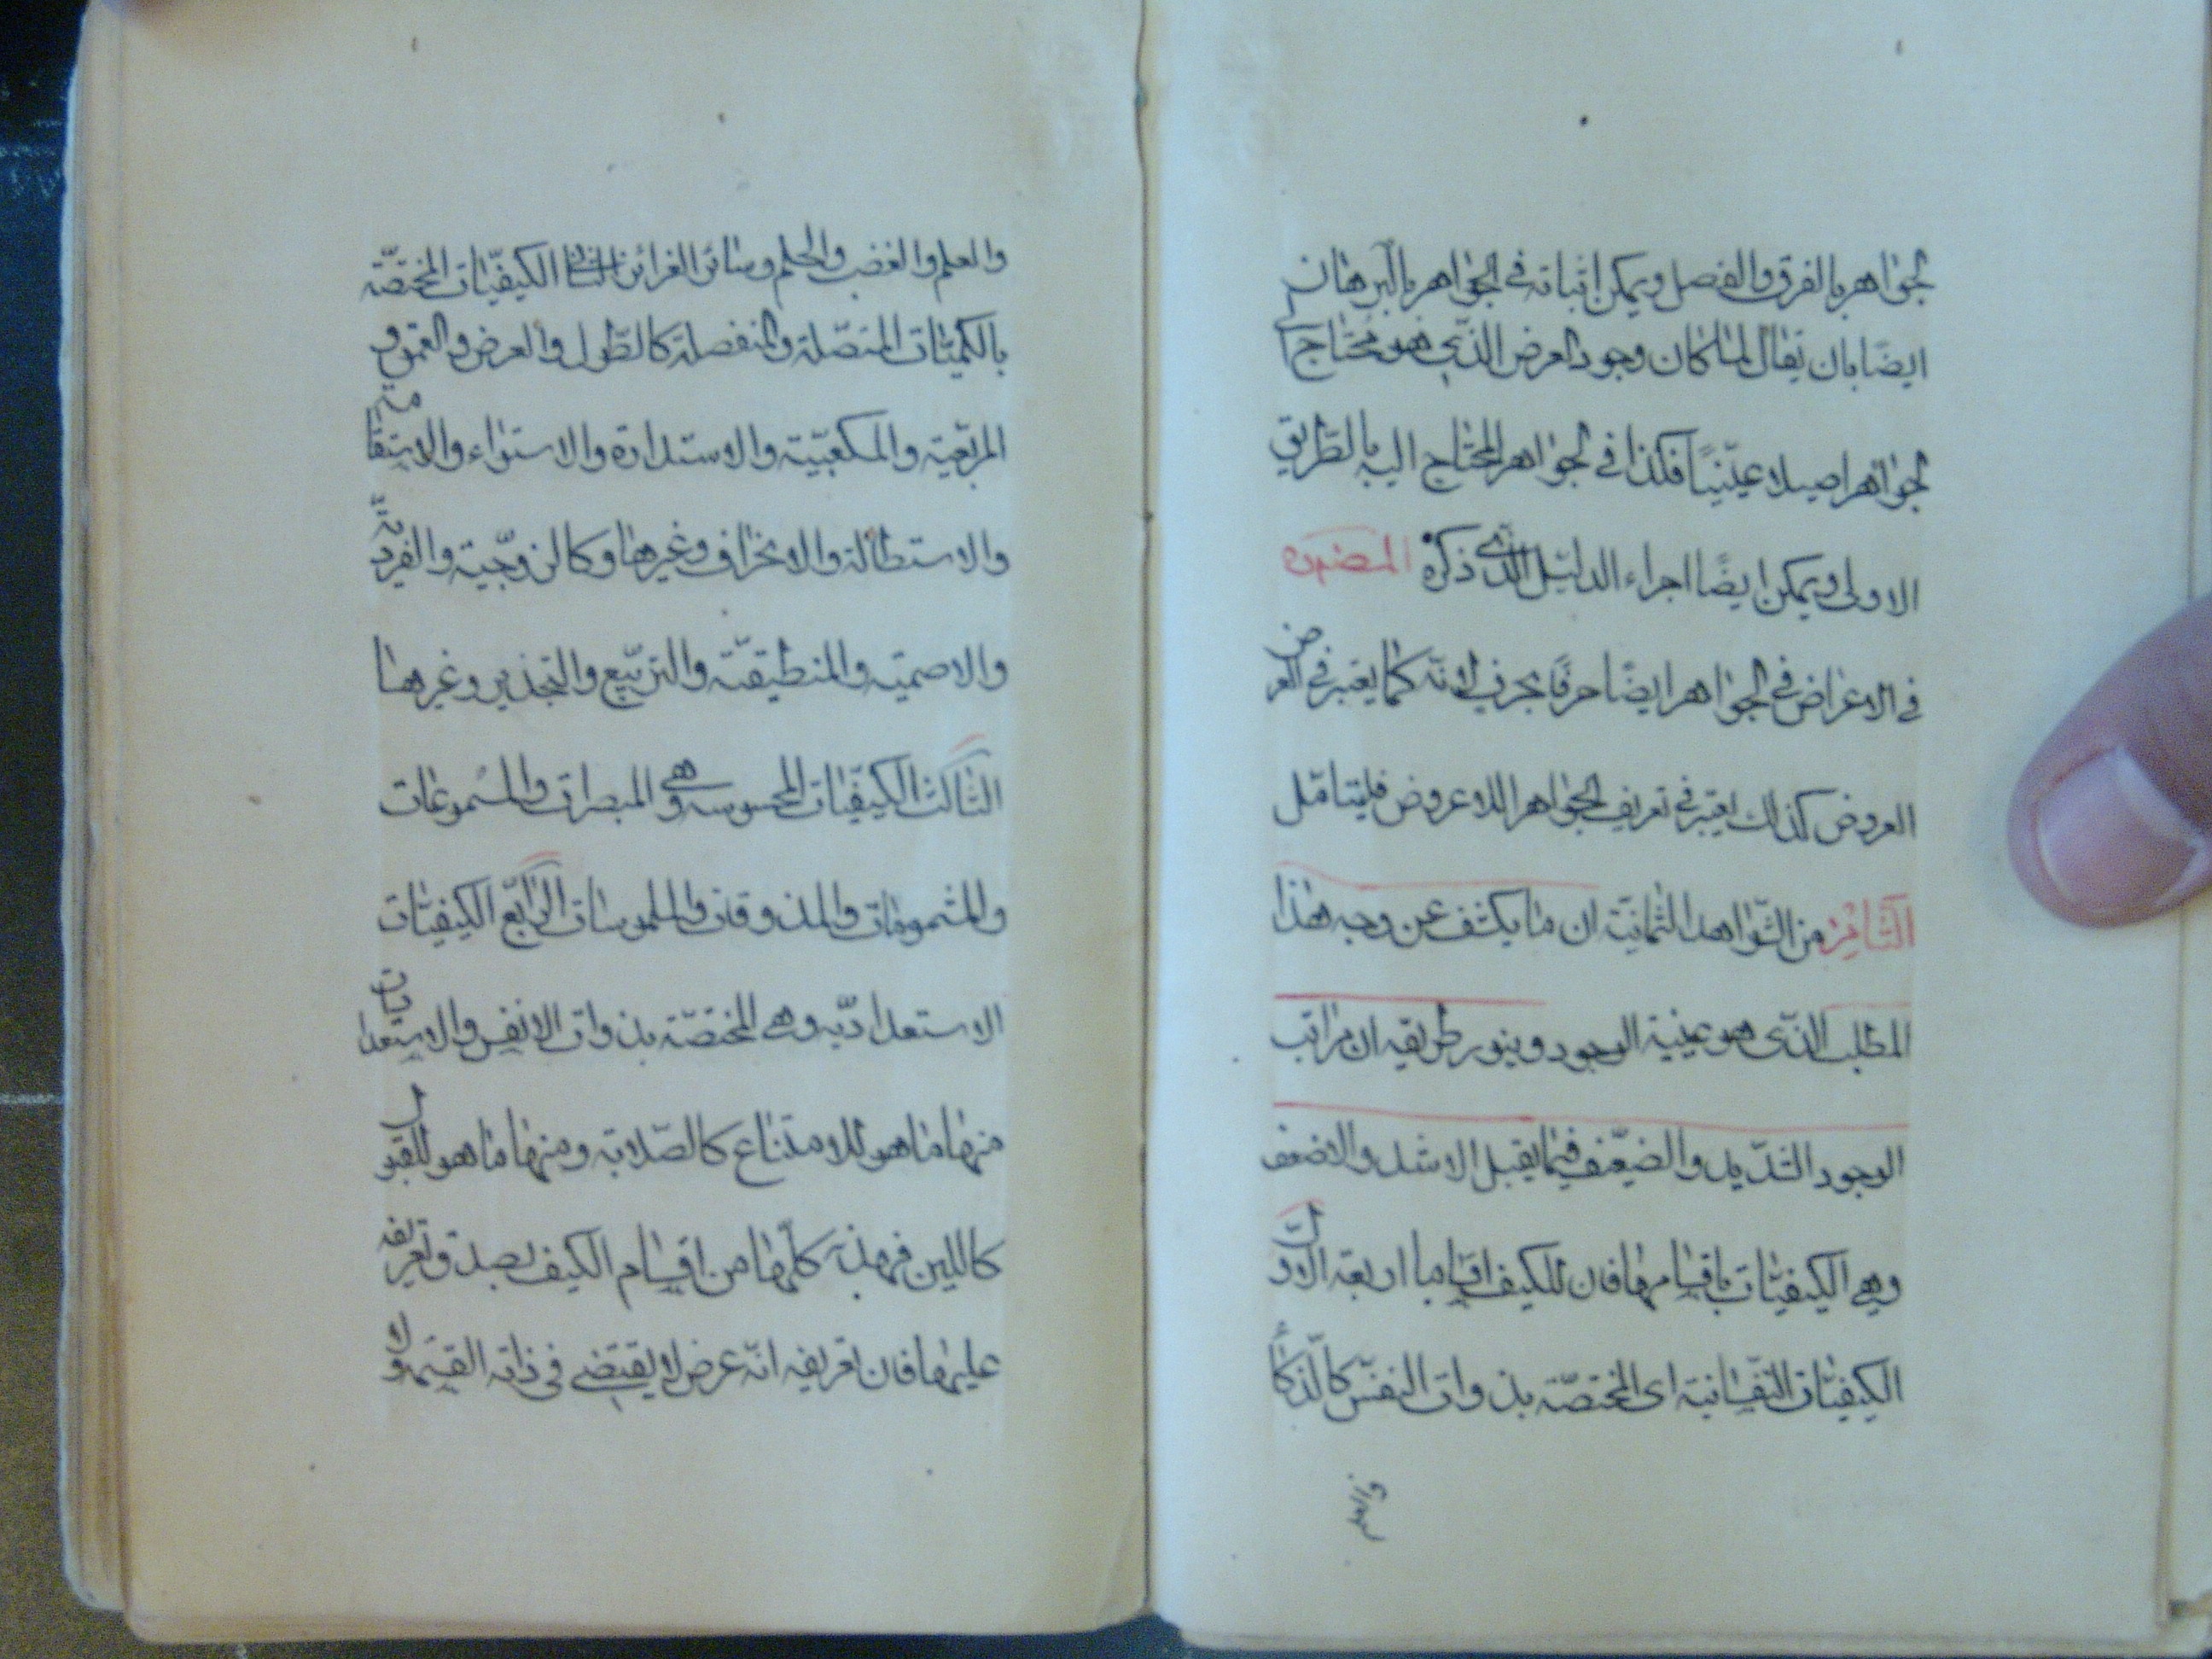 لجواهر بالفرق والفصل ويمكن اثباته في الجواهر بالبرهان
ايضًا بان يقال لما كان وجود العرض الذي هو محتاج
لجواهر اصيلا عينيًا فكذا في الجواهر المحتاج اليه بالطريق
الاولى ويمكن ايضًا اجراء الدليل الذي ذكره المص
في الاعراض في الجواهر ايضًا حرفًا بحرف لانه كما يعتبر في العرض
العروض كذلك يعتبر في تعريف الجواهر اللاعروض فليتامل
الثامن من الشواهد الثمانية ان ما يكشف عن وجه هذا
المطلب الذي هو عينية الوجود وينور طريقه ان مراتب
الوجود الشديد والضعيف فيما يقبل الاشد والاضعف
وهي الكيفيات باقسامها فان للكيف اقساما اربعة الاول
الكيفيات النفسانية اى المختصة بذوات النفس كالذكاء
والعلم والغضب والحلم وسائر الغرائز الكيفيات المختصة
بالكميات المتصلة والمنفصلة كالطول والعرض والعمق و
المربعية والمكعبية والاستدارة والاستواء والاستقامة
والاستطالة والانحراف وغيرها وكالزوجية والفردية
والاصمية والمنطيقية والتربيع والتجذير وغيرها
الثالث الكيفيات المحسوسه وهي المبصرات والمسموعات
والمشمومات والمذوقات والملموسات الرابع الكيفيات
الاستعداديه وهي المختصة بذوات الانفس والاستعدادات
منها ما هو للامتناع كالصلابة ومنها ما هو للقبول
كاللين فهذه كلها من اقسام الكيف لصدق تعريفه
عليها فان تعريفه انه عرض لا يقتضي في ذاته القسمة ولا